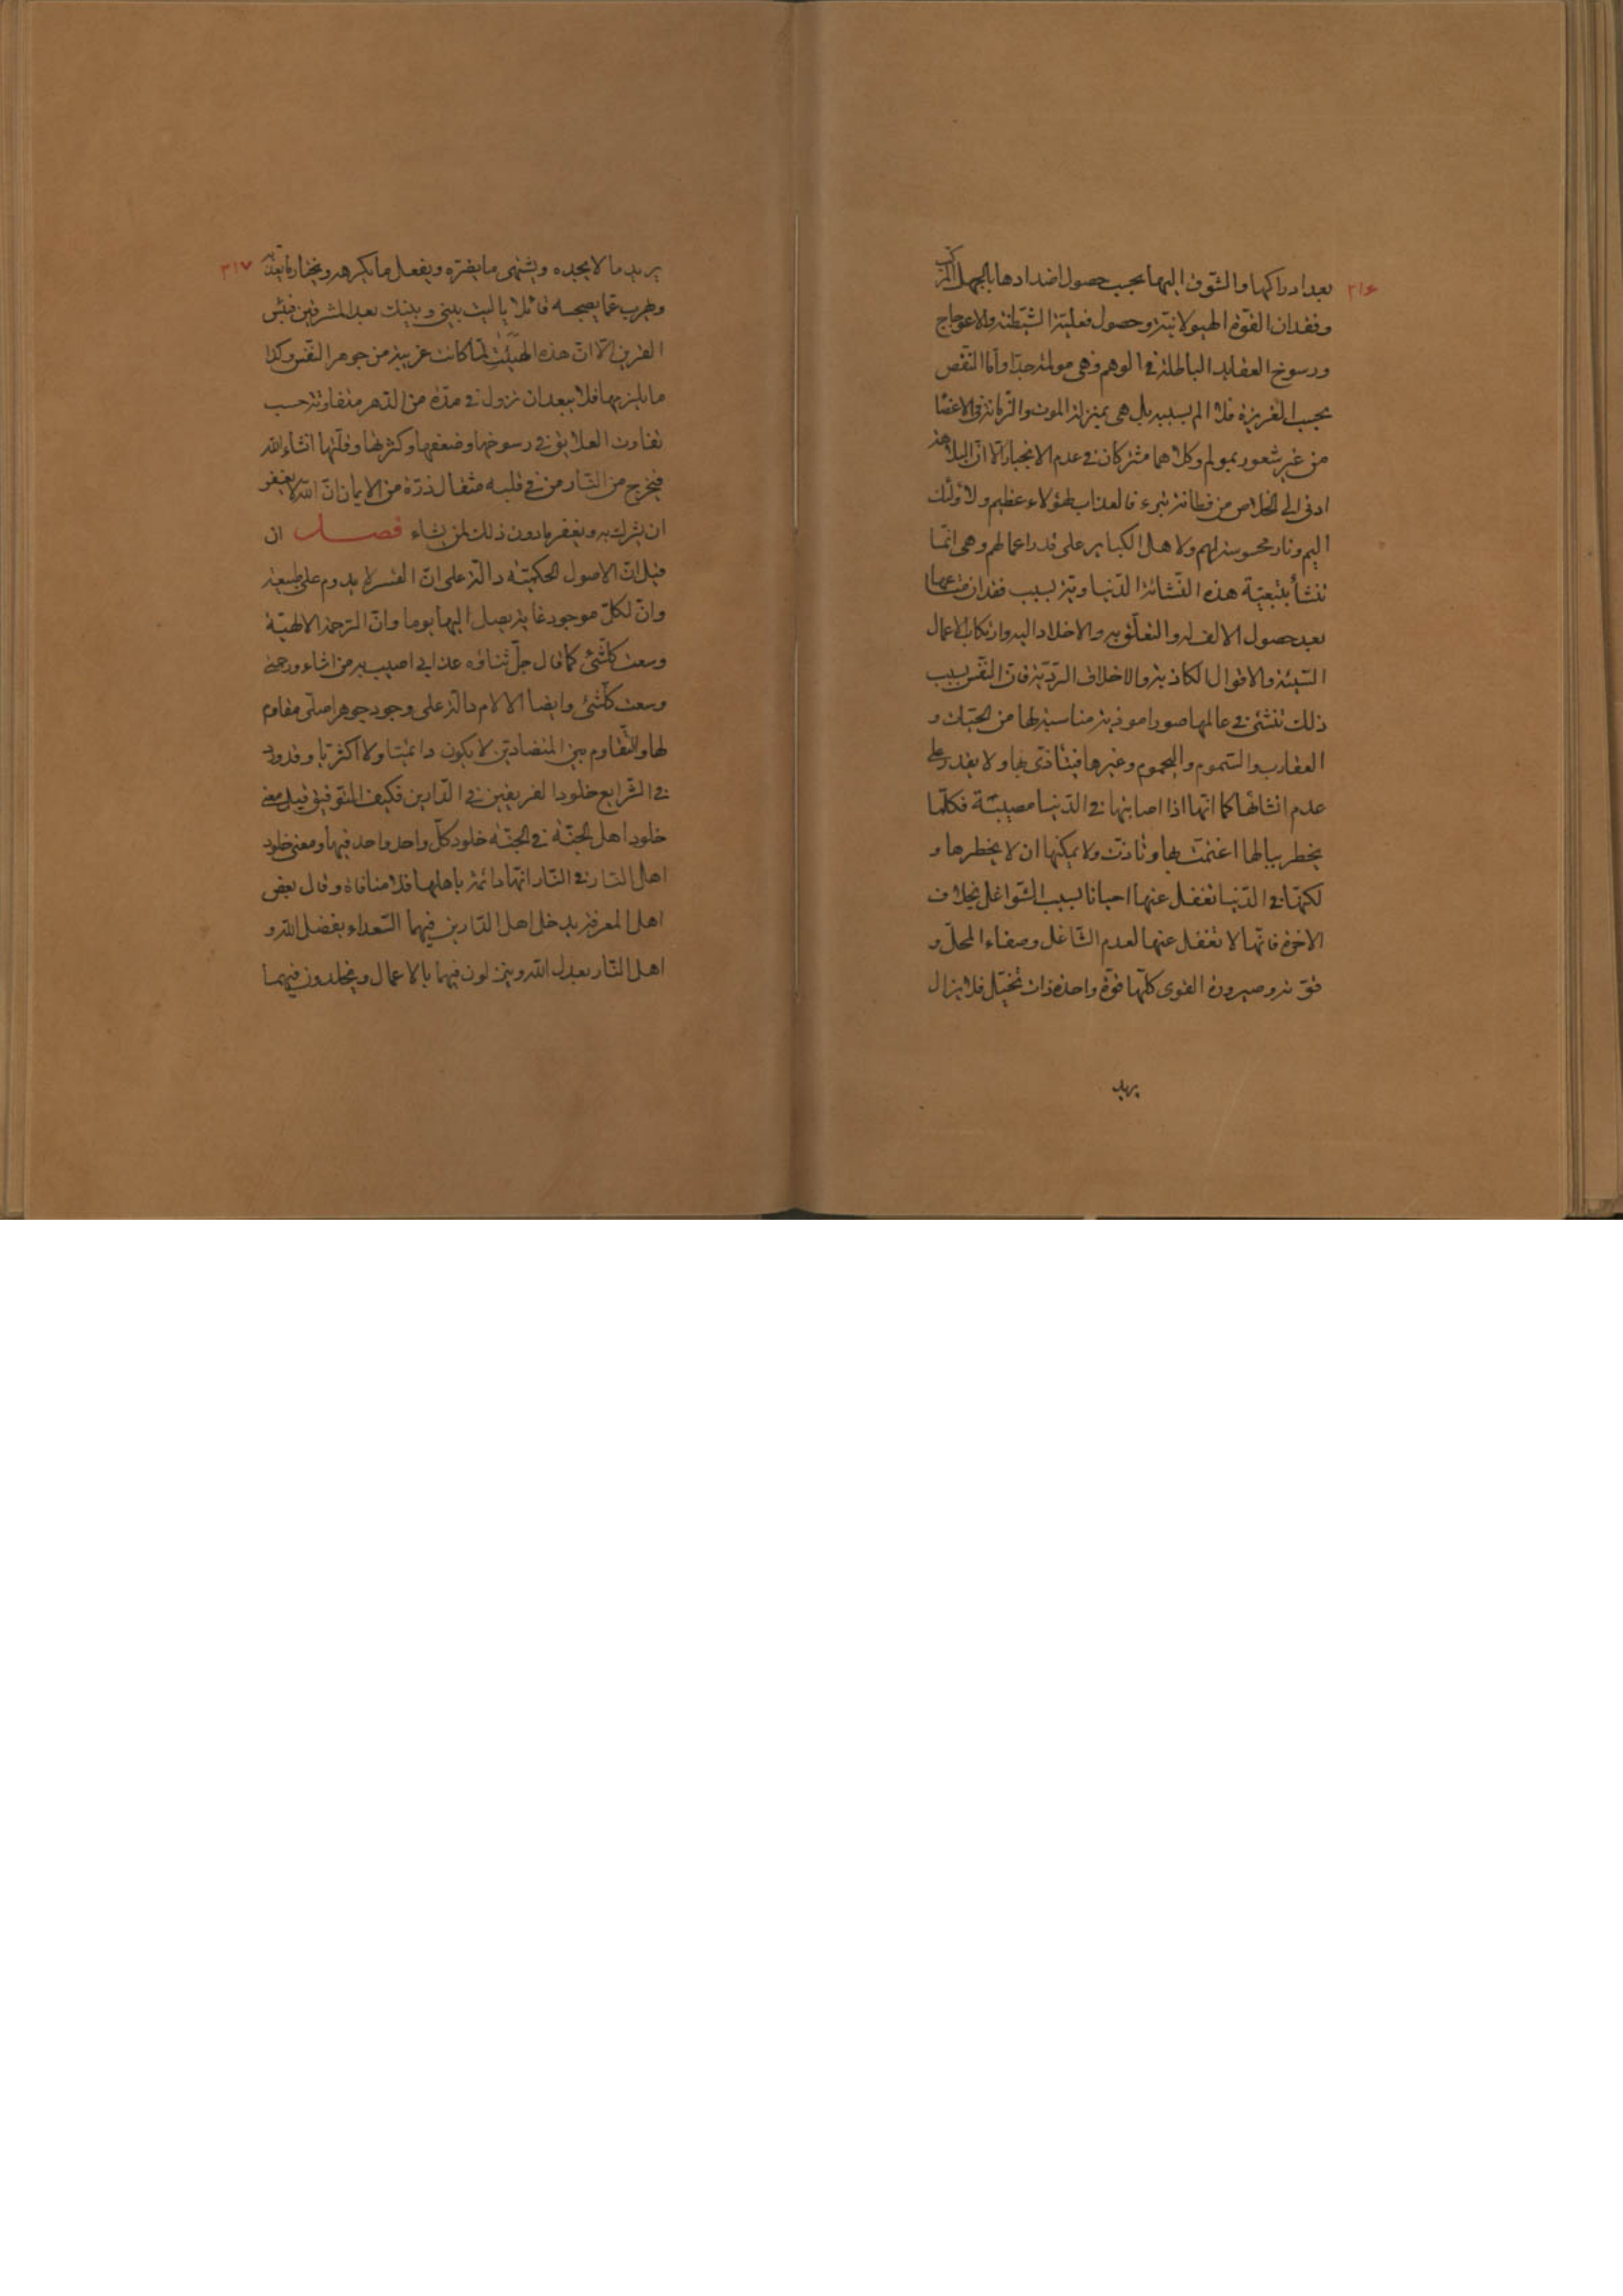 ٢١٤
بعد ادراكها والشوق اليها بحسب حصول اضدادها بالجهل المركب
وفقدان القوة الهيولانية وحصول فعلية الشيطنة والاعوجاج
ورسوخ العقايد الباطلة في الوهم وهي مولمة جدا واما النقص
بحسب الغريزة فلا الم بسببه بل هي بمنزلة الموت والزمانة في الاعضا
من غير شعور بمولم وكلاهما مشتركان في عدم الانجبار الا ان البلاهة
ادنى الى الخلاص من فطانة بتراء فالعذاب لهؤلاء عظيم ولاولئك
اليم ونار محسوسة لهم ولاهل الكباير على قدر اعمالهم وهي انما
تنشأ بتبعية هذه النشأة الدنياوية بسبب فقدان متاعها
بعد حصول الالف له والتعلق به والاخلاد اليه وارتكاب الاعمال
السيئة والاقوال الكاذبة والاخلاق الردية فان النفس بسبب
ذلك تنشئ في عالمها صورا موذية مناسبة لها من الحيات و
العقارب والسموم واليحموم وغيرها فيتاذى بها ولا يقدر على
عدم انشائها كما انها اذا اصابتها في الدنيا مصيبة فكلما
يخطر ببالها اغتمت بها وتاذت ولا يمكنها ان لا يخطرها و
لكنها في الدنيا تغفل عنها احيانا لسبب الشواغل بخلاف
الاخرة فانها لا تغفل عنها لعدم الشاغل وصفاء المحل و
قوته وصيرورة القوى كلها قوة واحدة ذات تخيل فلا يزال
يريد
٢١٧
يريد ما لا يجده ويشتهي ما يضره ويفعل ما يكرهه ويختار ما يعذبه
ويهرب عما يصحبه قائلا يا ليت بيني وبينك بعد المشرقين فبئس
القرين الا ان هذه الهيئت لما كانت غريبة من جوهر النفس وكذا
ما يلزمها فلا يبعد ان تزول في مدة من الدهر متفاوتة حسب
تفاوت العلايق في رسوخها وضعفها وكثرتها وقلتها انشاء الله
فيخرج من النار من في قلبه مثقال ذرة من الايمان ان الله لا يغفر
ان يشرك به ويغفر مادون ذلك لمن يشاء فصل ان
قيل ان الاصول الحكمية دالة على ان القسر لا يدوم على طبيعة
وان لكل موجود غاية يصل اليها يوما وان الرحمة الالهية
وسعت كلشئ كما قال جل ثناؤه عذابي اصيب به من اشاء ورحمتي
وسعت كلشئ وايضا الالام دالة على وجود جوهر اصلي مقاوم
لها والتقاوم بين المتضادين لا يكون دائميا ولا اكثريا وقد ورد
في الشرايع خلود الفريقين في الدارين فكيف التوفيق قيل معنى
خلود اهل الجنة في الجنة خلود كل واحد واحد فيها ومعنى خلود
اهل النار في النار انها دائمة باهلها فلا منافاة وقال بعض
اهل المعرفة يدخل اهل الدارين فيهما السعداء بفضل الله و
اهل النار بعدل الله وينزلون فيهما بالاعمال ويخلدون فيهما